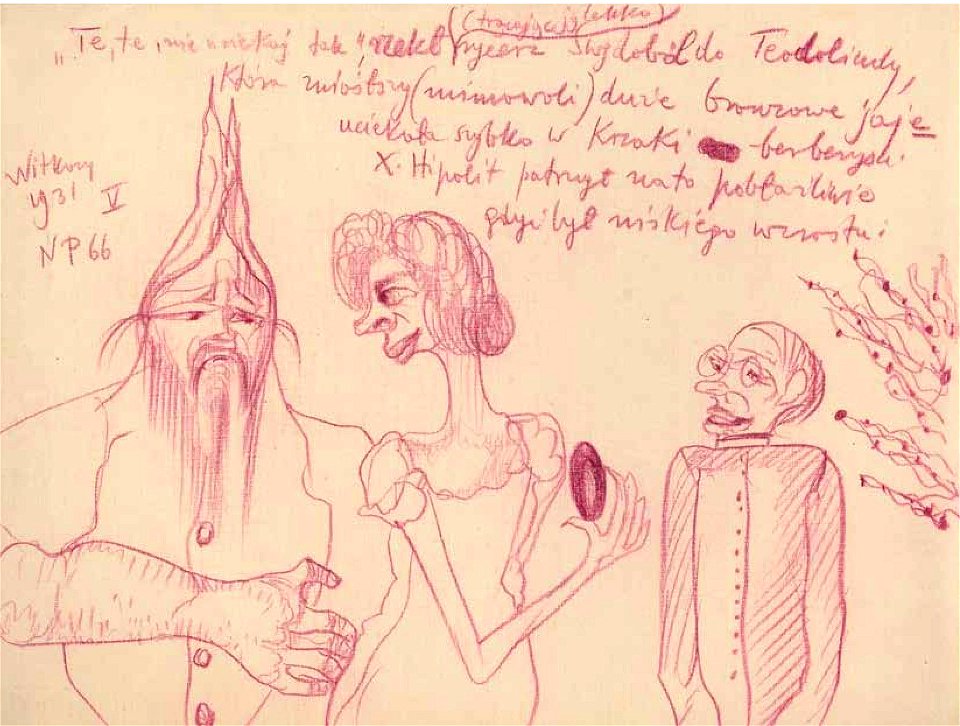 (trącając ją lekko)
„Te, te, nie uciekaj tak", rzekł rycerz do Teodolindy,
która zniósłszy (mimowoli) duże bronzowe jaje
uciekała szybko w krzaki berberysu.
X. Hipolit patrzył na to pobłażliwie
gdyż był niskiego wzrostu.
Witkacy
1931 V
NP 66